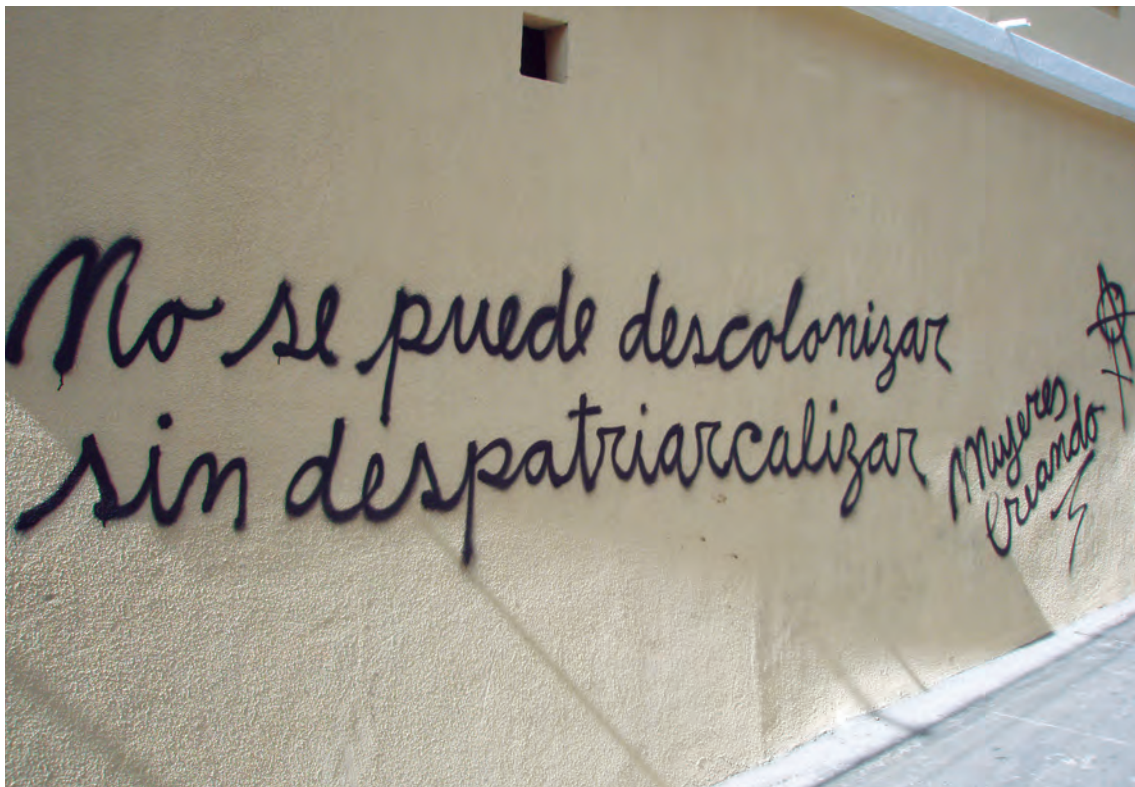 No se puede descolonizar
sin despatriarcalizar
Mujeres
Creando